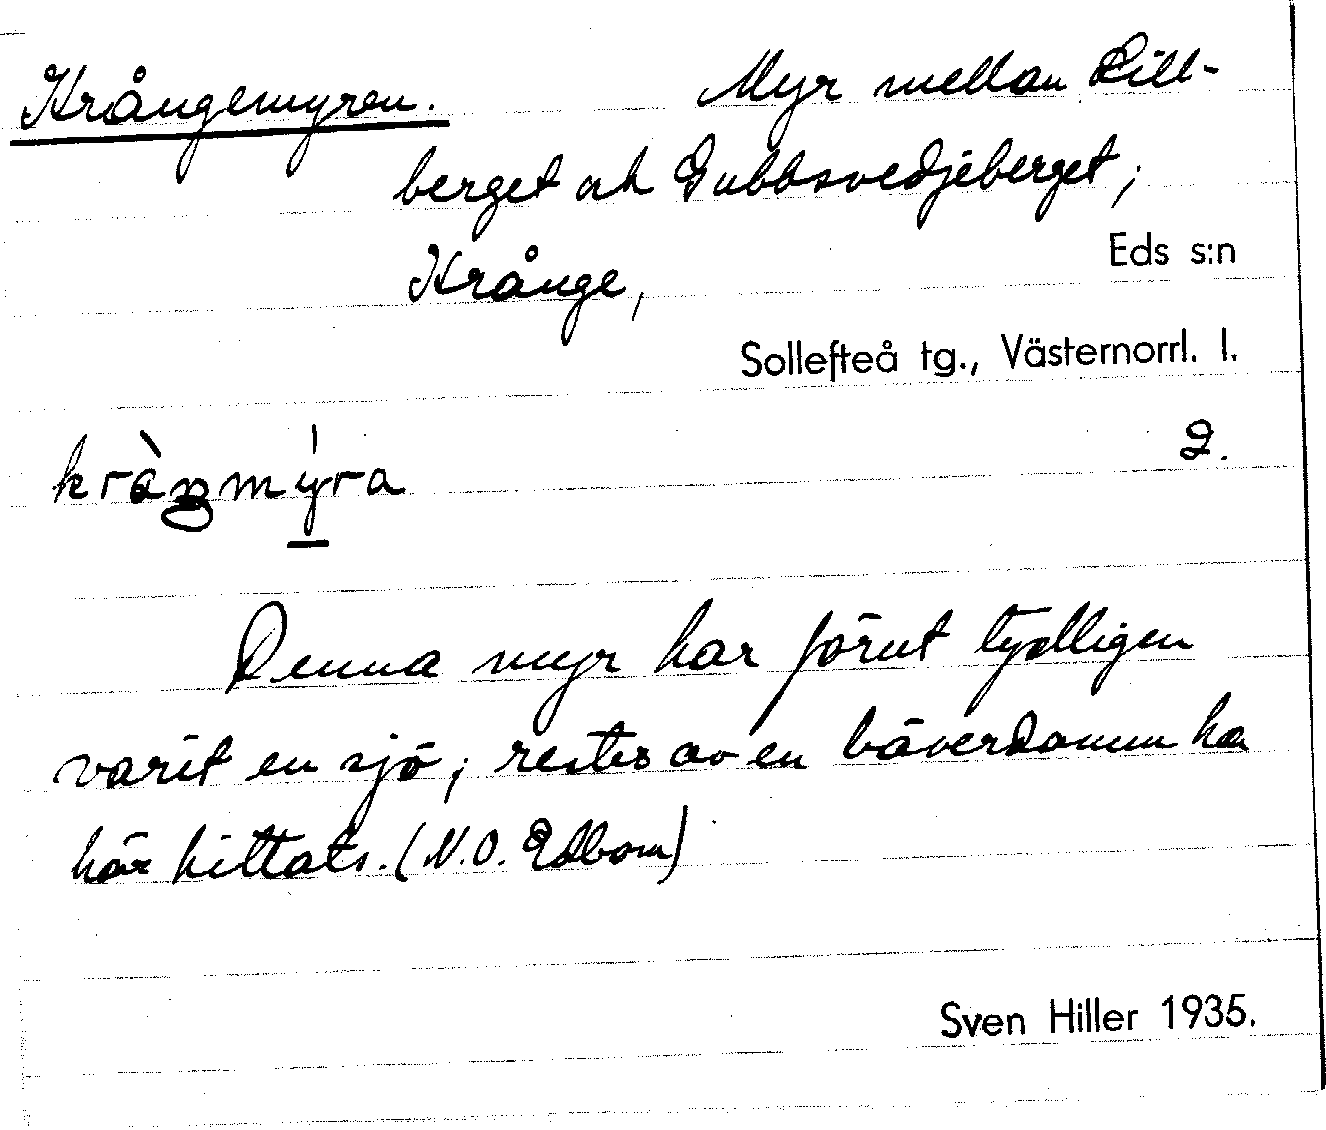 Krångemyren. Myr mellan Lill-
berget och Gubbsvedjeberget;
Krånge, Eds s:n
Sollefteå tg., Västernorrl. l.
2.
Denna myr har förut tydligen
varit en sjö; rester av en bäverdamm ha
här hittats. (N.O. Edbom)
Sven Hiller 1935.